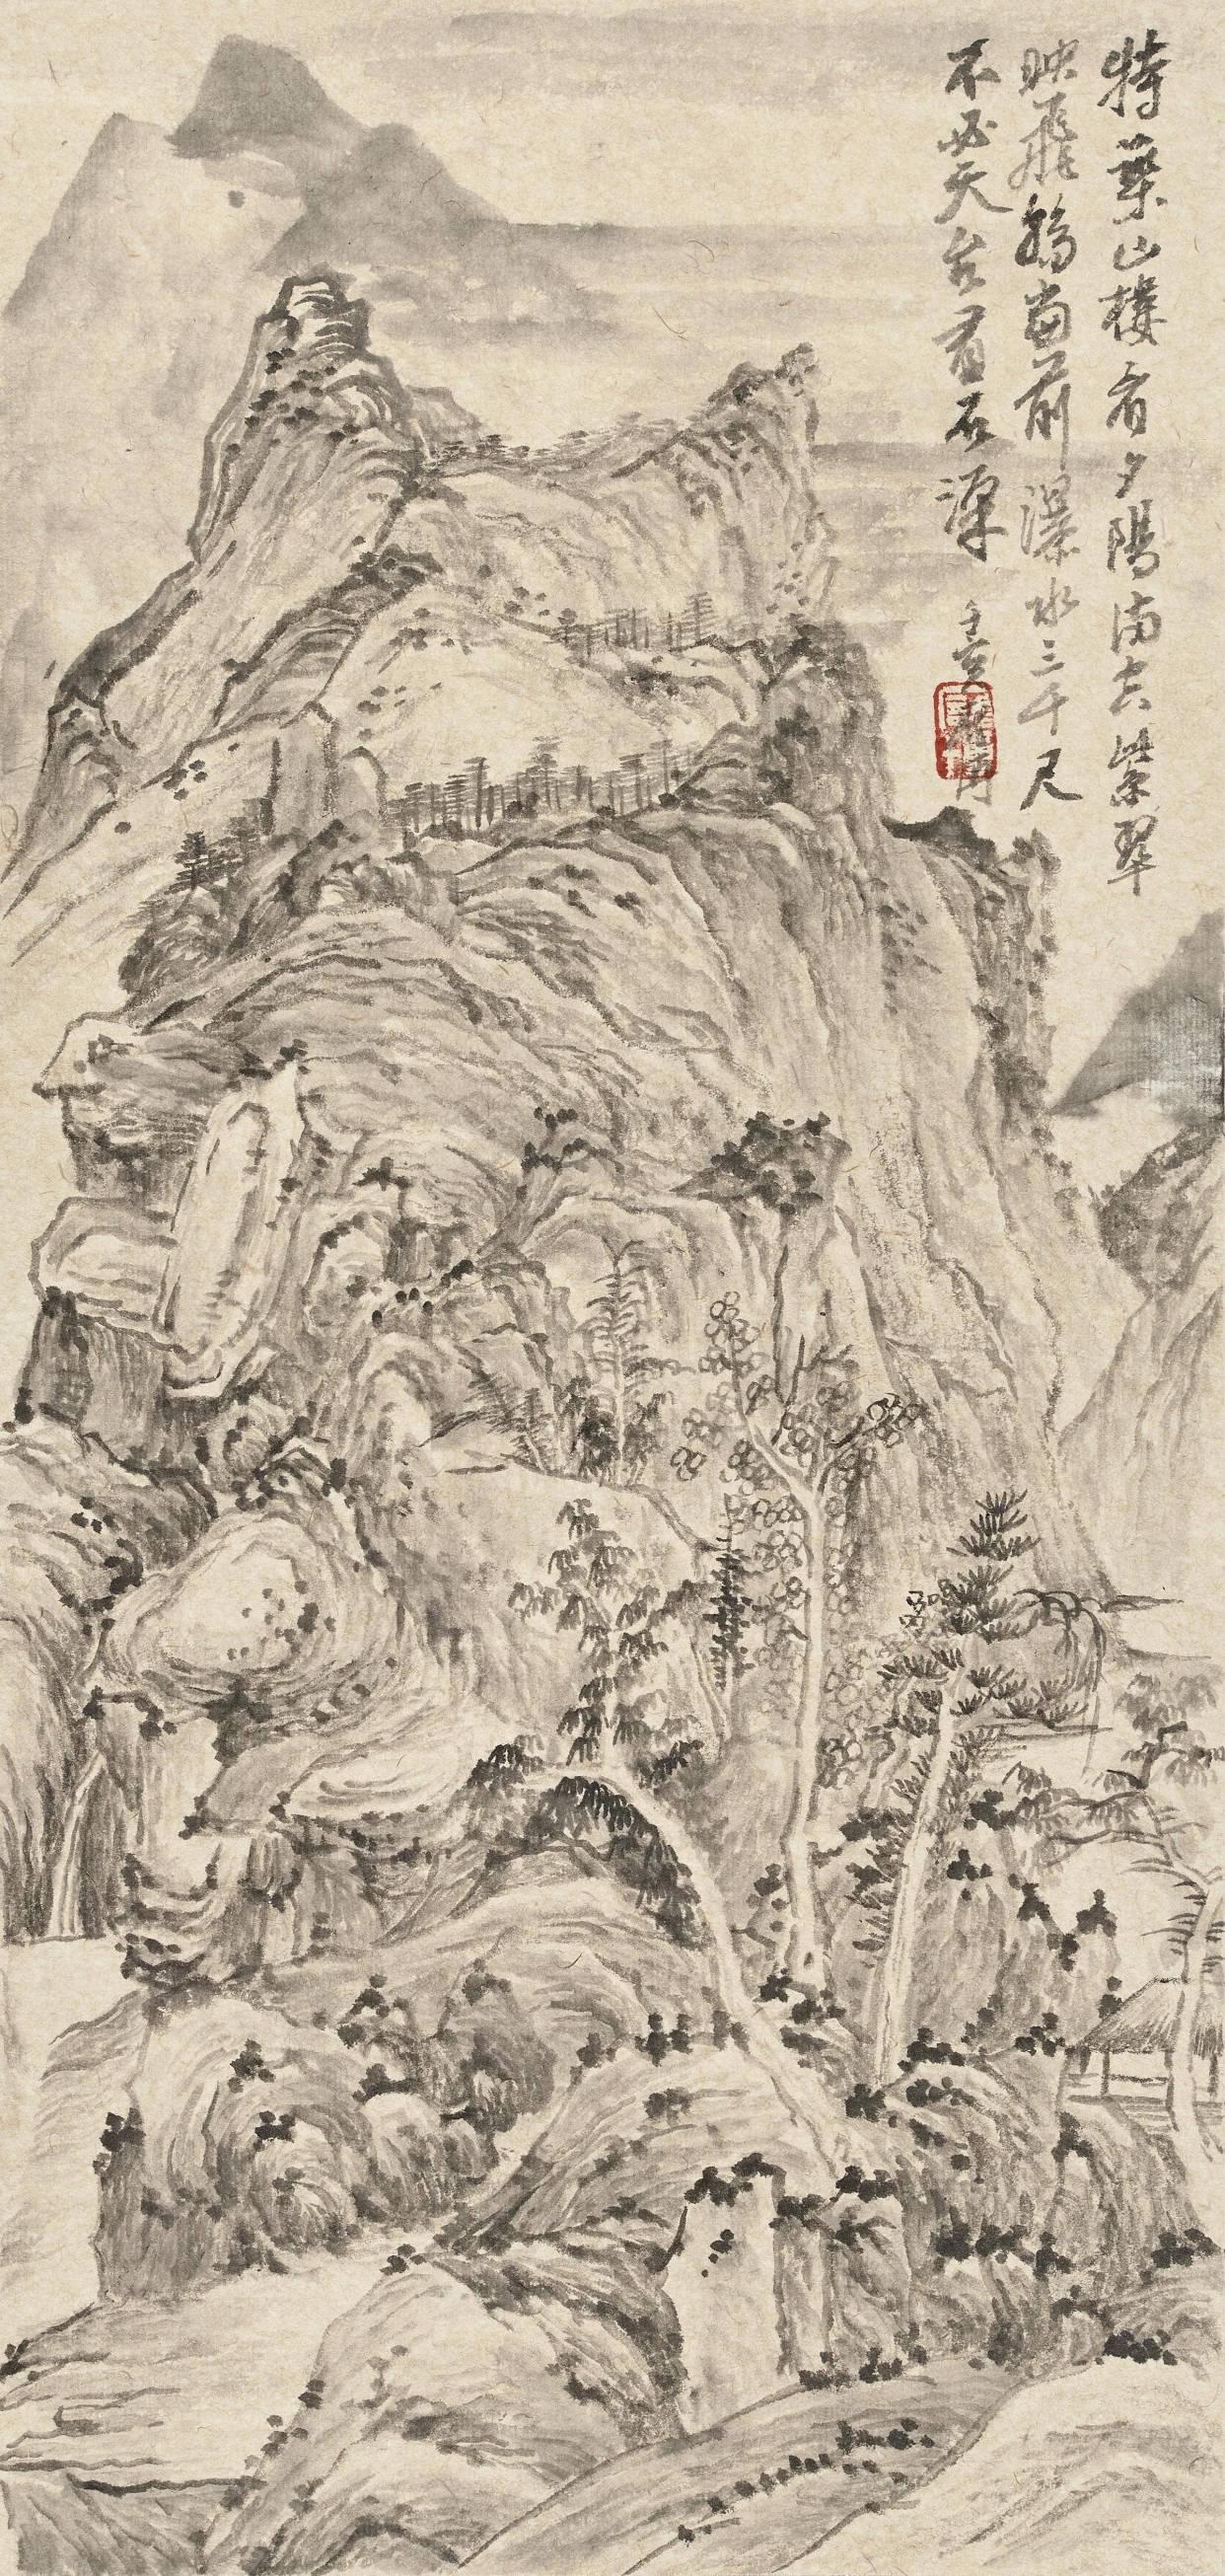 特築山樓看夕陽滿空紫翠
映飛觴當前瀑水三千尺
不必天台看石梁 壬寅